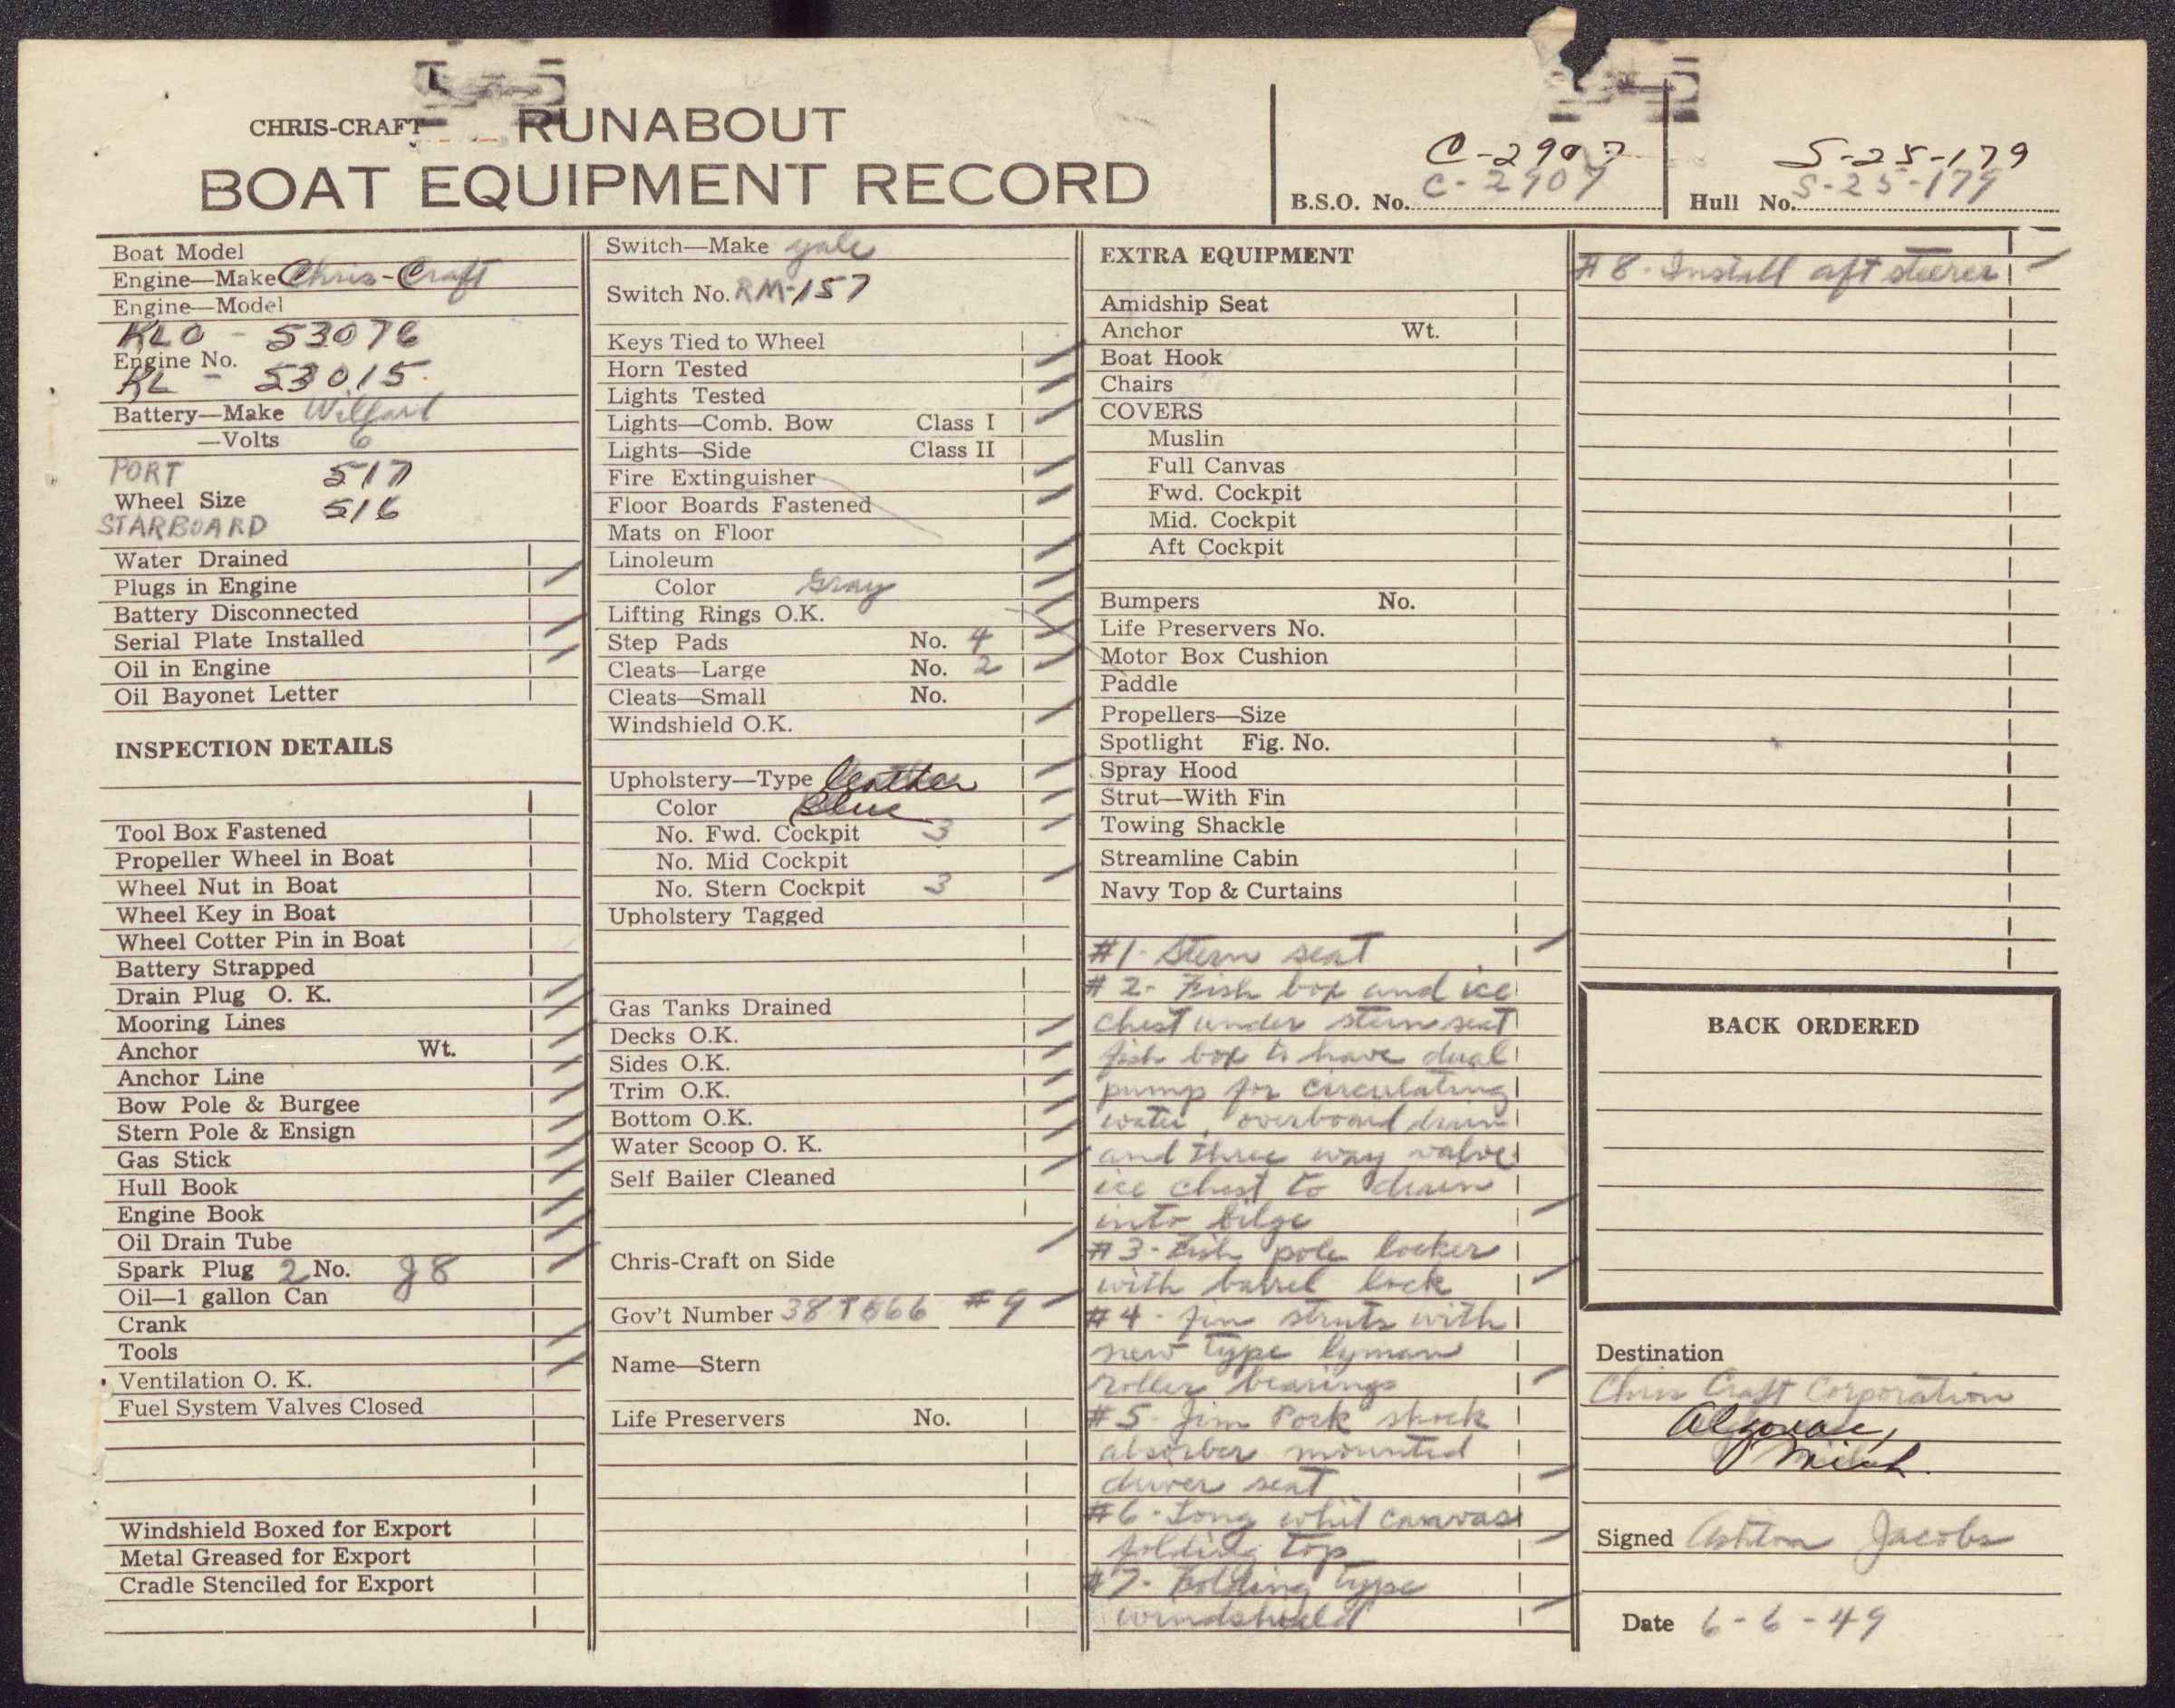 CHRIS-CRAFT RUNABOUT
BOAT EQUIPMENT RECORD
C-2907
B.S.O. No. C-2907
S-25-179
Hull No. S-25-179
Boat Model
Engine—Make Chris-Craft
Engine—Model
KLO - 53076
Engine No.
KL - 53015
Battery—Make Willard
—Volts 6
PORT 517
Wheel Size 516
STARBOARD
Water Drained
Plugs in Engine
Battery Disconnected
Serial Plate Installed
Oil in Engine
Oil Bayonet Letter
INSPECTION DETAILS
Tool Box Fastened
Propeller Wheel in Boat
Wheel Nut in Boat
Wheel Key in Boat
Wheel Cotter Pin in Boat
Battery Strapped
Drain Plug O. K.
Mooring Lines
Anchor Wt.
Anchor Line
Bow Pole & Burgee
Stern Pole & Ensign
Gas Stick
Hull Book
Engine Book
Oil Drain Tube
Spark Plug 2 No. J8
Oil—1 gallon Can
Crank
Tools
Ventilation O. K.
Fuel System Valves Closed
Windshield Boxed for Export
Metal Greased for Export
Cradle Stenciled for Export
Switch—Make Yale
Switch No. RM-157
Keys Tied to Wheel
Horn Tested
Lights Tested
Lights—Comb. Bow Class I
Lights—Side Class II
Fire Extinguisher
Floor Boards Fastened
Mats on Floor
Linoleum
Color Gray
Lifting Rings O.K.
Step Pads No. 4
Cleats—Large No. 2
Cleats—Small No.
Windshield O.K.
Upholstery—Type leather
Color Blue
No. Fwd. Cockpit 3
No. Mid Cockpit
No. Stern Cockpit 3
Upholstery Tagged
Gas Tanks Drained
Decks O.K.
Sides O.K.
Trim O.K.
Bottom O.K.
Water Scoop O. K.
Self Bailer Cleaned
Chris-Craft on Side
Gov't Number #9
Name—Stern
Life Preservers No.
EXTRA EQUIPMENT
Amidship Seat
Anchor Wt.
Boat Hook
Chairs
COVERS
Muslin
Full Canvas
Fwd. Cockpit
Mid. Cockpit
Aft Cockpit
Bumpers No.
Life Preservers No.
Motor Box Cushion
Paddle
Propellers—Size
Spotlight Fig. No.
Spray Hood
Strut—With Fin
Towing Shackle
Streamline Cabin
Navy Top & Curtains
#1- Stern seat
#2- Fish box and ice
chest under stern seat
fish box to have dual
pump for circulating
water, overboard drain
and three way valve
ice chest to drain
into bilge
#3- Fish pole locker
with barrel lock
#4- fin struts with
new type lyman
roller bearings
#5- Jim Pork shock
absorber mounted
driver seat
#6- Long whit canvas
folding top
#7- Folding type
windshield
#8- Install aft steerer
BACK ORDERED
Destination
Chris Craft Corporation
Algonac,
Mich.
Signed Ashton Jacobs
Date 6-6-49